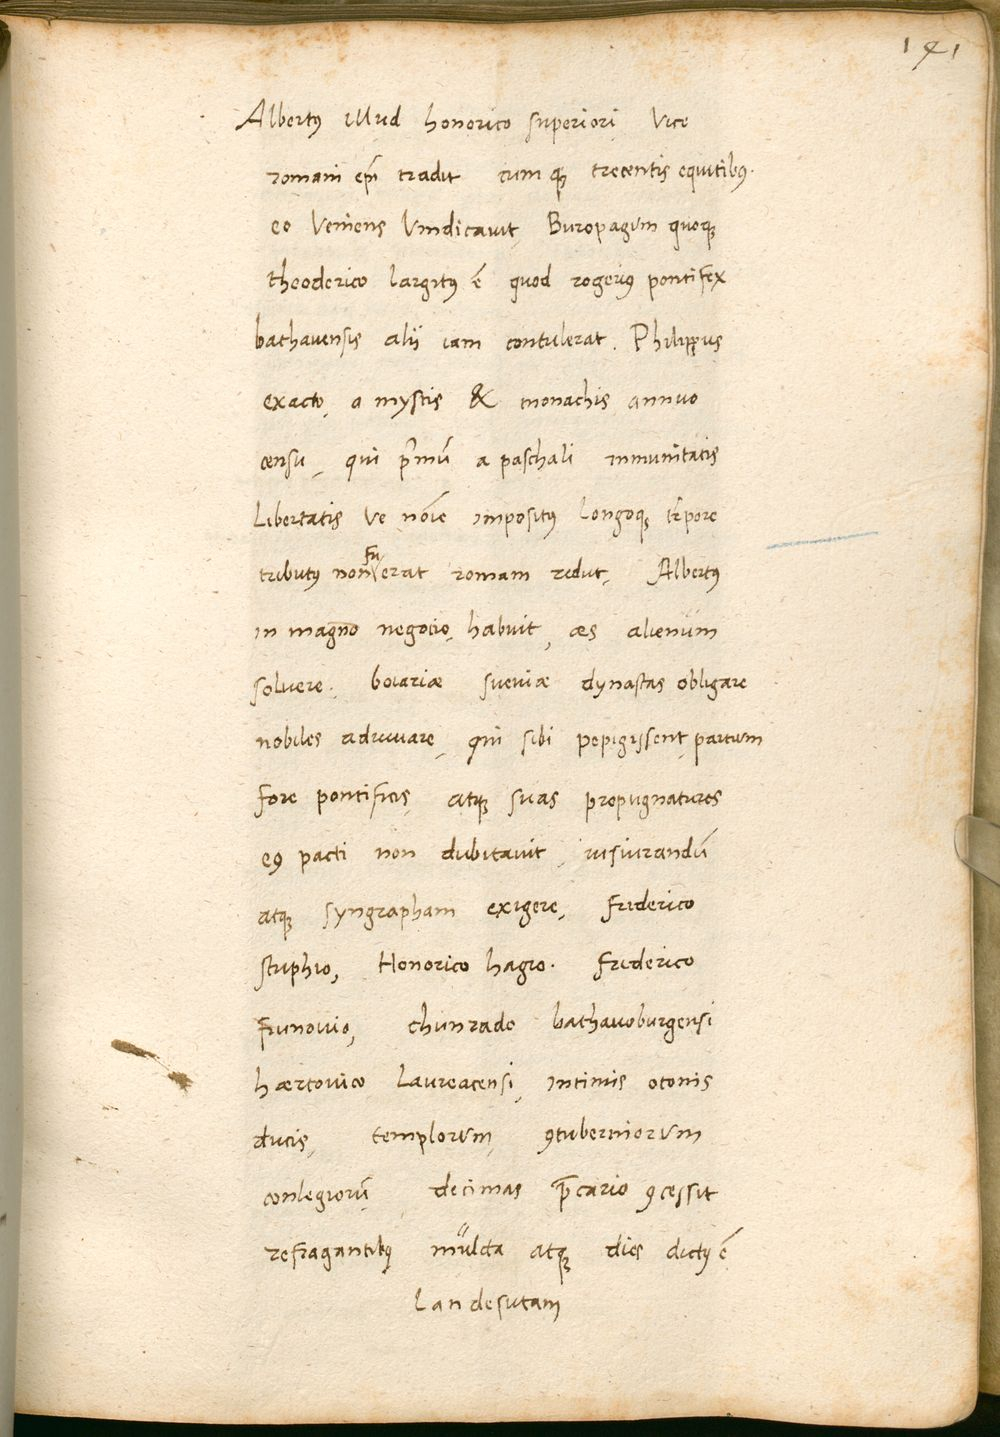 141
Albertꝰ illud honorico superiori vice
romani ep̄i tradit cum qꝫ trecentis equitibꝰ.
eo Veniens Vindicavit, Buropagum quoqꝫ
theoderico largitꝰ ē quod rogeriꝰ pontifex
bathauensis alij iam contulerat. Philippus
exacto, a mystis & monachis annuo
censu, qui p̄rimū a paschali inmunitatis
Libertatis ve nōīe impositꝰ longoqꝫ tēpore
tributꝰ non fuerat romam redit, Albertꝰ
in magno negocio, habuit, æs alienum
soluere. boiariæ sueuiæ dynastas obligare
nobiles adiuuare, qui sibi pepigissent, partum
fore pontificis, atqꝫ suas propugnatures
eꝰ pacti non dubitauit, iusiurandū
atqꝫ syngrapham exigere, friderico
stuphio, Honorico hagio. friderico
frunouio, chunrado bathauoburgensi
hærtovico Laureacensi, intimis otonis
ducis, templorum, ꝯtuberniorum
conlegiorū, decimas p̄cario ꝯcessit
refragantibꝰ mulcta atqꝫ dies dictꝰ ē
Landesutam